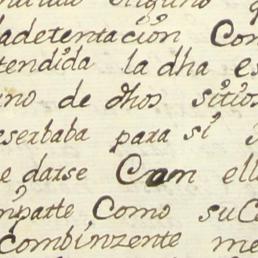 adetentación Con
tendida la dha es
uno de dhos sitios
eserbaba para sí
e darse Com ell
mparte Como suC
Combinzente me